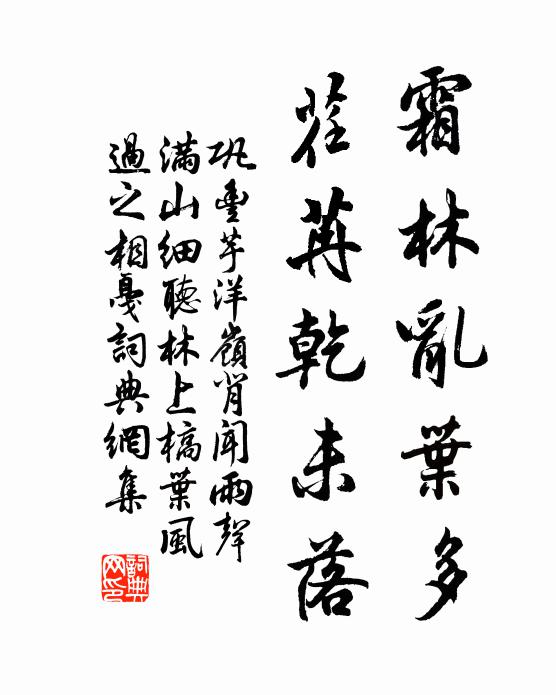 霜林亂葉多
荏苒乾未落
巩豐芋洋嶺背聞雨聲
滿山細聽林上槁葉風
過之相戛詞典網集
詞典网印